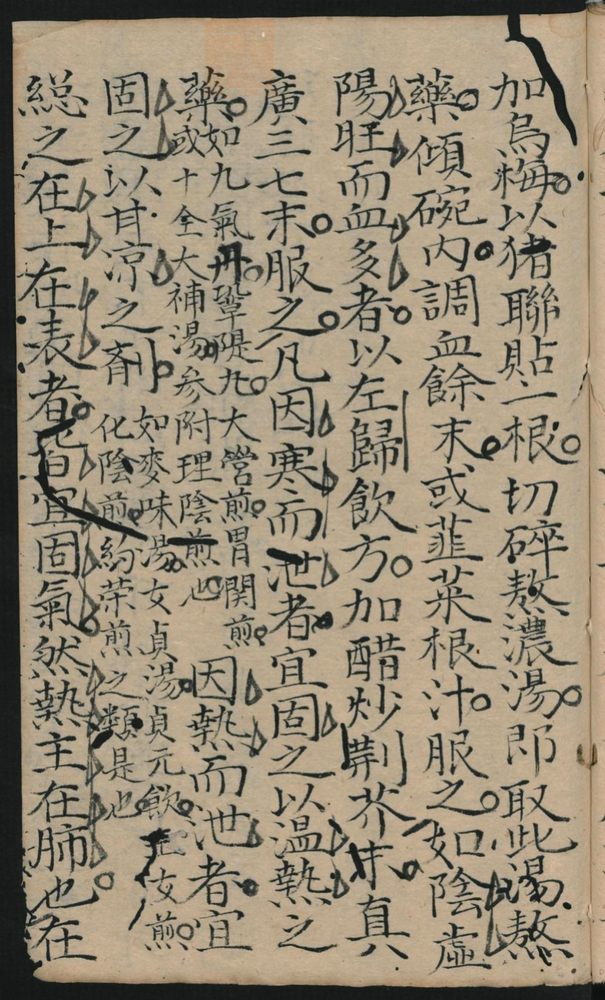 加烏梅以猪聯貼一根切碎熬濃湯即取此湯熬
藥傾碗内調血餘末或韮菜根汁服之如陰虛
陽旺而血多者以左歸飲方加醋炒荆芥末真
廣三七末服之凡因寒而泄者宜固之以温熱之
藥
如九氣丹鞏隄丸大營煎胃関煎
或十全大補湯参附理陰煎也
因熱而泄者宜
固之以甘凉之剤
如麥味湯女貞湯貞元飲玉女煎
化陰煎約荣煎之類是也
総之在上在表者皆宜固氣然熱主在肺也在